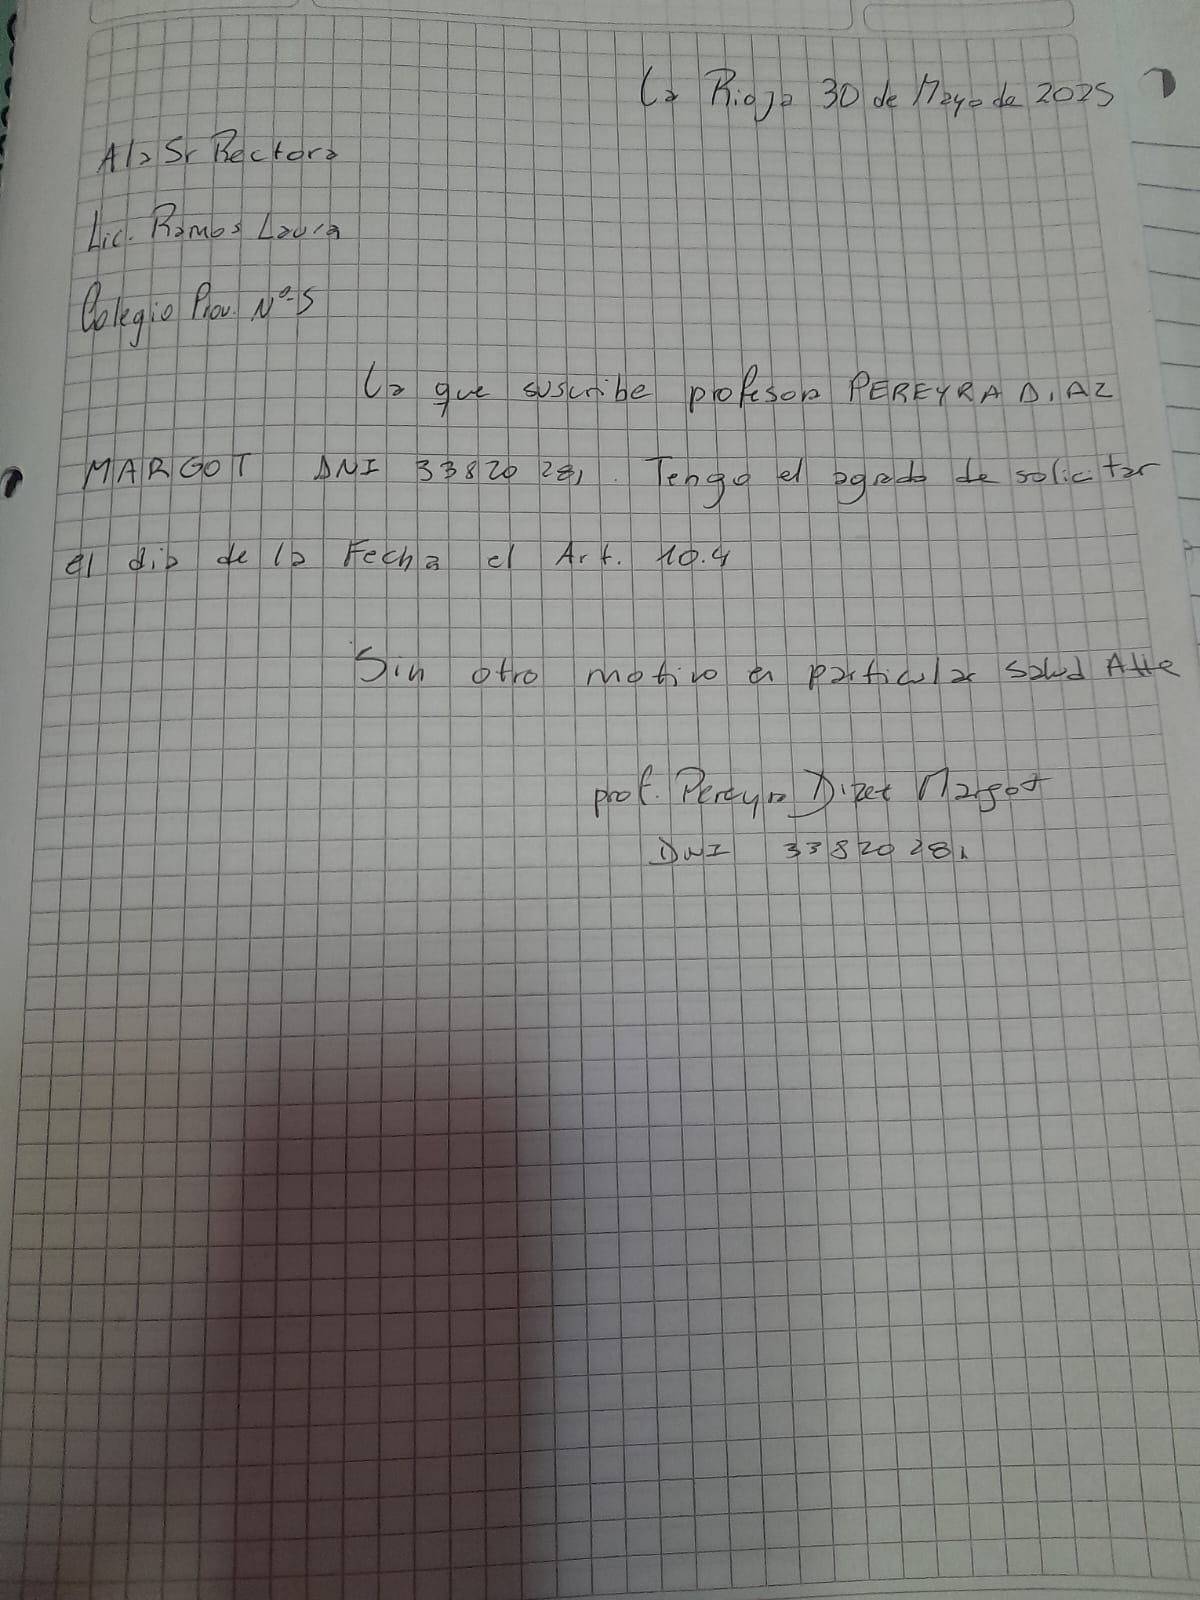 La Rioja 30 de Mayo de 2025
A la Sr Rectora
Lic. Ramos Laura
Colegio Prov. Nº 5
La que suscribe profesora PEREYRA DIAZ
MARGOT DNI 33820281. Tengo el agrado de solicitar
el dia de la Fecha el Art. 10.4
Sin otro motivo en particular salud Atte
prof. Pereyra Margot
DNI 33820281